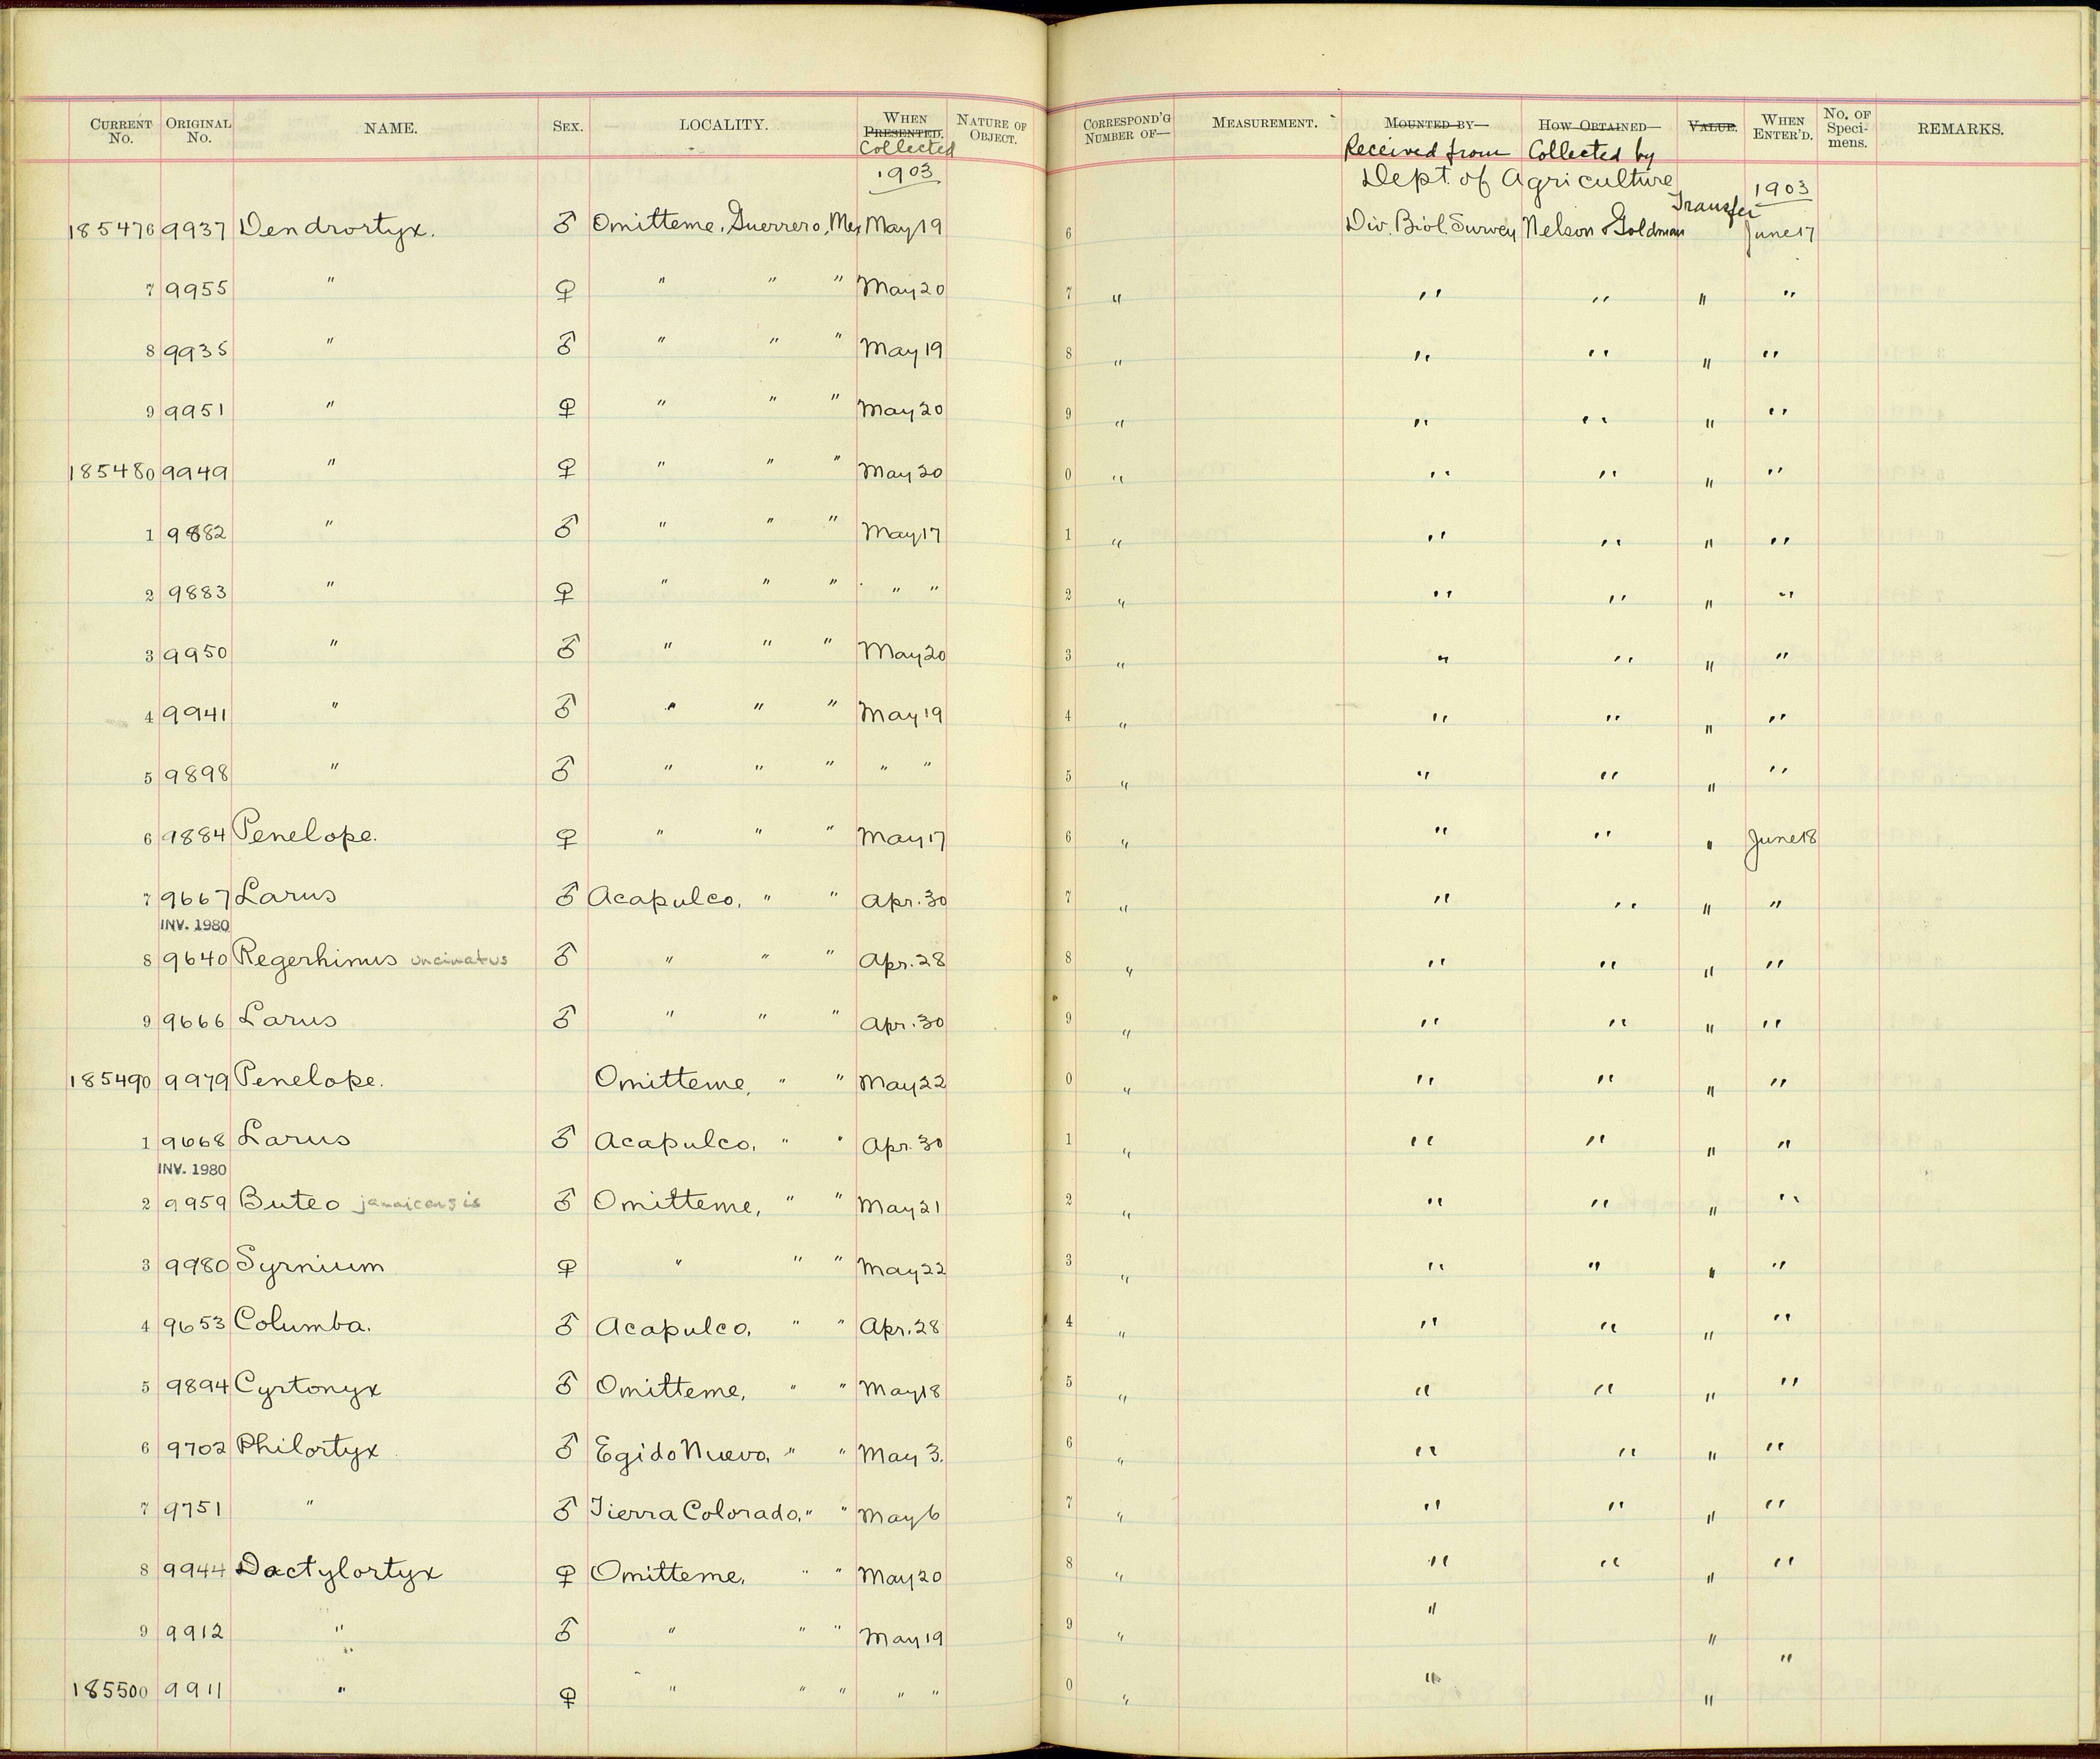 CURRENT No. ORIGINAL No. NAME. SEX. LOCALITY. WHEN PRESENTED. Collected NATURE OF OBJECT. CORRESPOND'G NUMBER OF— MEASUREMENT. MOUNTED BY— Received from HOW OBTAINED— Collected by VALUE. WHEN ENTER'D. No. OF Speci-mens. REMARKS.
1903 Dept. of Agriculture Transfer 1903
185476 9937 Dendrortyx. ♂ Omitteme, Guerrero, Mex May 19 6 Div. Biol. Survey Nelson & Goldman June 17
7 9955 " ♀ " " " May 20 7 " " " " "
8 9935 " ♂ " " " May 19 8 " " " " "
9 9951 " ♀ " " " May 20 9 " " " " "
185480 9949 " ♀ " " " May 20 0 " " " " "
1 9882 " ♂ " " " May 17 1 " " " " "
2 9883 " ♀ " " " " " 2 " " " " "
3 9950 " ♂ " " " May 20 3 " " " " "
4 9941 " ♂ " " " May 19 4 " " " " "
5 9898 " ♂ " " " " " 5 " " " " "
6 9884 Penelope. ♀ " " " May 17 6 " " " " June 18
7 9667 Larus ♂ Acapulco, " " Apr. 30 7 " " " " "
INV. 1980
8 9640 Regerhinus uncinatus ♂ " " " Apr. 28 8 " " " " "
9 9666 Larus ♂ " " " Apr. 30 9 " " " " "
185490 9979 Penelope. Omitteme, " " May 22 0 " " " " "
1 9668 Larus ♂ Acapulco, " " Apr. 30 1 " " " " "
INV. 1980
2 9959 Buteo jamaicensis ♂ Omitteme, " " May 21 2 " " " " "
3 9980 Syrnium ♀ " " " May 22 3 " " " " "
4 9653 Columba. ♂ Acapulco, " " Apr. 28 4 " " " " "
5 9894 Cyrtonyx ♂ Omitteme, " " May 18 5 " " " " "
6 9702 Philortyx ♂ Egido Nuevo, " " May 3. 6 " " " " "
7 9751 " ♂ Tierra Colorado, " " May 6 7 " " " " "
8 9944 Dactylortyx ♀ Omitteme, " " May 20 8 " " " " "
9 9912 " ♂ " " " May 19 9 " " " "
185500 9911 " ♀ " " " " " 0 " " "